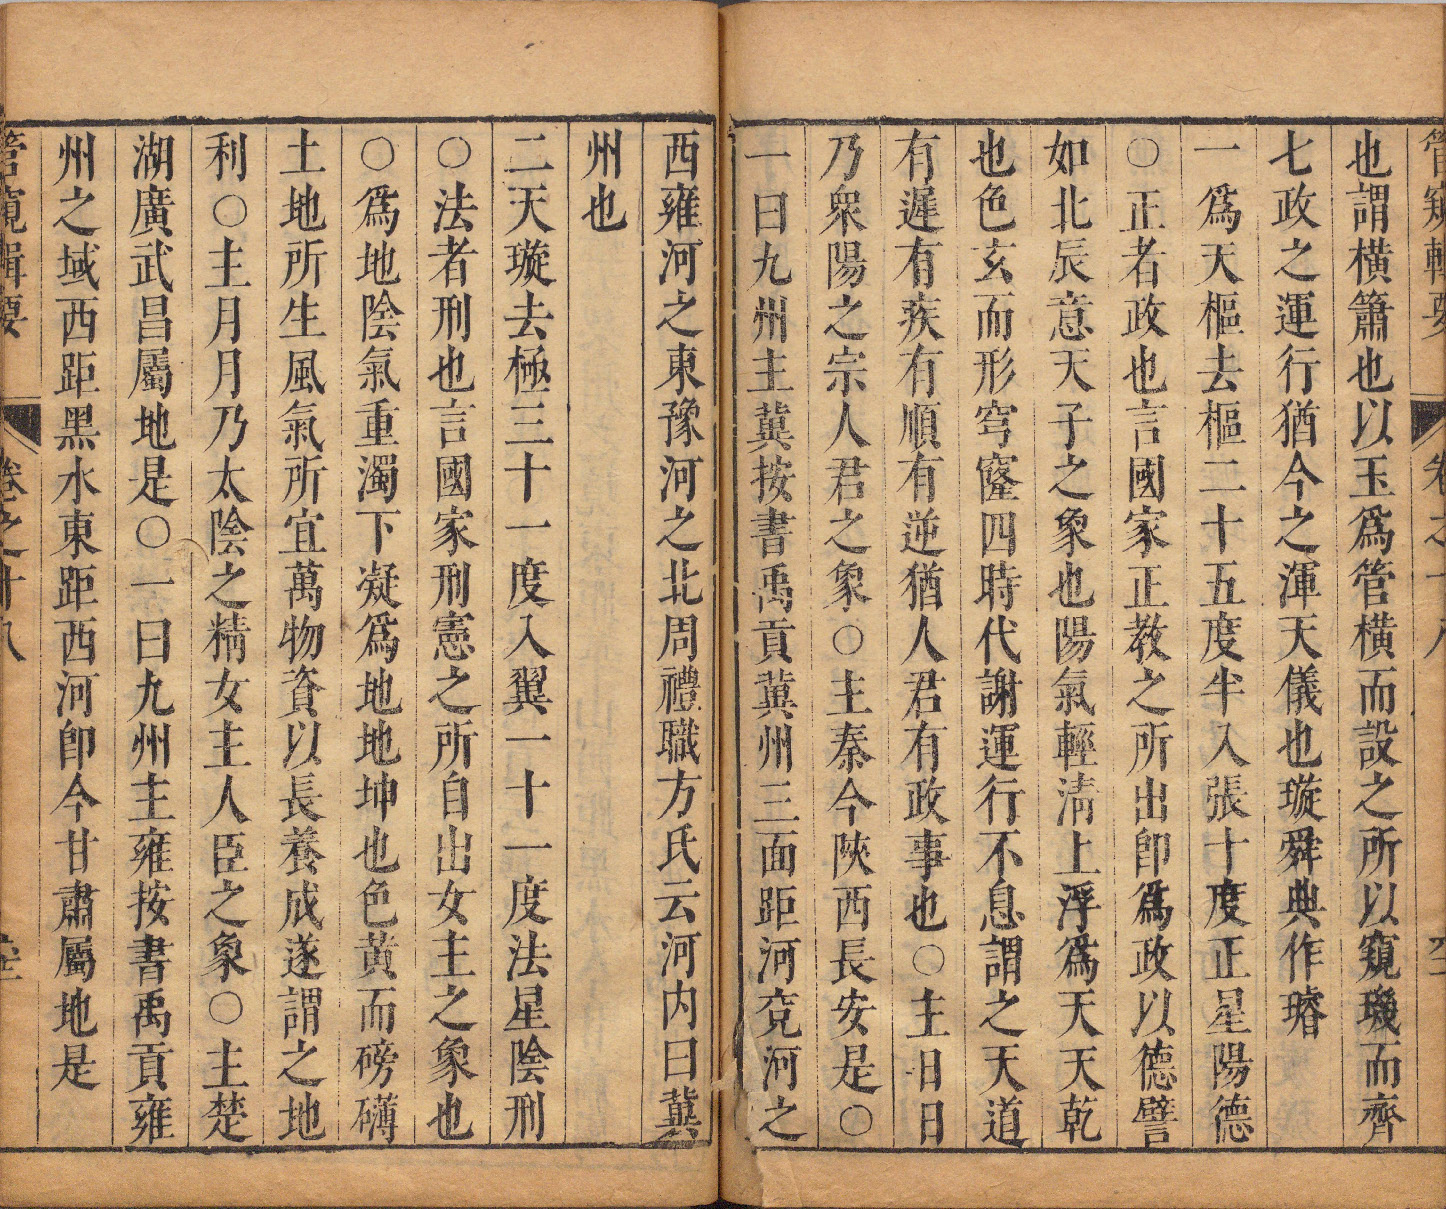 管窺輯要 卷之十八
也謂橫簫也以玉爲管橫而設之所以窺璣而齊
七政之運行猶今之渾天儀也璇舜典作璿
一爲天樞去樞二十五度半入張十度正星陽德
○正者政也言國家正教之所出卽爲政以德譬
如北辰意天子之象也陽氣輕淸上浮爲天天乾
也色玄而形穹窿四時代謝運行不息謂之天道
有遲有疾有順有逆猶人君有政事也○主日日
乃衆陽之宗人君之象○主秦今陜西長安是○
一曰九州主冀按書禹貢冀州三面距河兗河之
西雍河之東豫河之北周禮職方氏云河内曰冀
州也
二天璇去極三十一度入翼一十一度法星陰刑
○法者刑也言國家刑憲之所自出女主之象也
○爲地陰氣重濁下凝爲地地坤也色黃而磅礴
土地所生風氣所宜萬物資以長養成遂謂之地
利○主月月乃太陰之精女主人臣之象○主楚
湖廣武昌屬地是○一曰九州主雍按書禹貢雍
州之域西距黑水東距西河卽今甘肅屬地是
管窺輯要 卷之十八